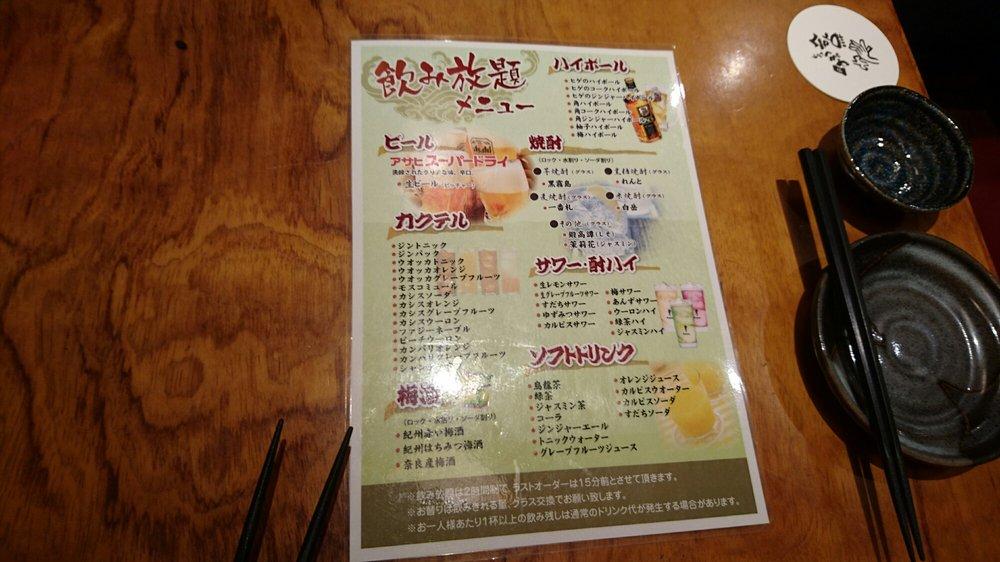 飲み放題
メニュー
ビール
アサヒスーパードライ
洗練されたクリアな味、辛口。
生ビール(ピッチャー)
カクテル
ジントニック
ジンバック
ウオッカトニック
ウオッカオレンジ
ウオッカグレープフルーツ
モスコミュール
カシスソーダ
カシスオレンジ
カシスグレープフルーツ
カシスウーロン
ファジーネーブル
ピーチウーロン
カンパリオレンジ
カンパリグレープフルーツ
梅酒
(ロック・水割り・ソーダ割り)
紀州赤い梅酒
紀州はちみつ梅酒
奈良産梅酒
ハイボール
ヒゲのハイボール
ヒゲのコークハイボール
ヒゲのジンジャーハイボール
角ハイボール
角コークハイボール
角ジンジャーハイボール
柚子ハイボール
梅ハイボール
焼酎
(ロック・水割り・ソーダ割り)
●芋焼酎(グラス)
黒霧島
●黒糖焼酎(グラス)
れんと
●麦焼酎(グラス)
一番札
●米焼酎(グラス)
白岳
●その他(グラス)
鍛高譚(しそ)
茉莉花(ジャスミン)
サワー・酎ハイ
生レモンサワー
生グレープフルーツサワー
すだちサワー
ゆずみつサワー
カルピスサワー
梅サワー
あんずサワー
ウーロンハイ
緑茶ハイ
ジャスミンハイ
ソフトドリンク
烏龍茶
緑茶
ジャスミン茶
コーラ
ジンジャーエール
トニックウォーター
グレープフルーツジュース
オレンジジュース
カルピスウオーター
カルピスソーダ
すだちソーダ
※飲み放題は2時間制で、ラストオーダーは15分前とさせて頂きます。
※お替りは飲みきれる量、グラス交換でお願い致します。
※お一人様あたり1杯以上の飲み残しは通常のドリンク代が発生する場合があります。